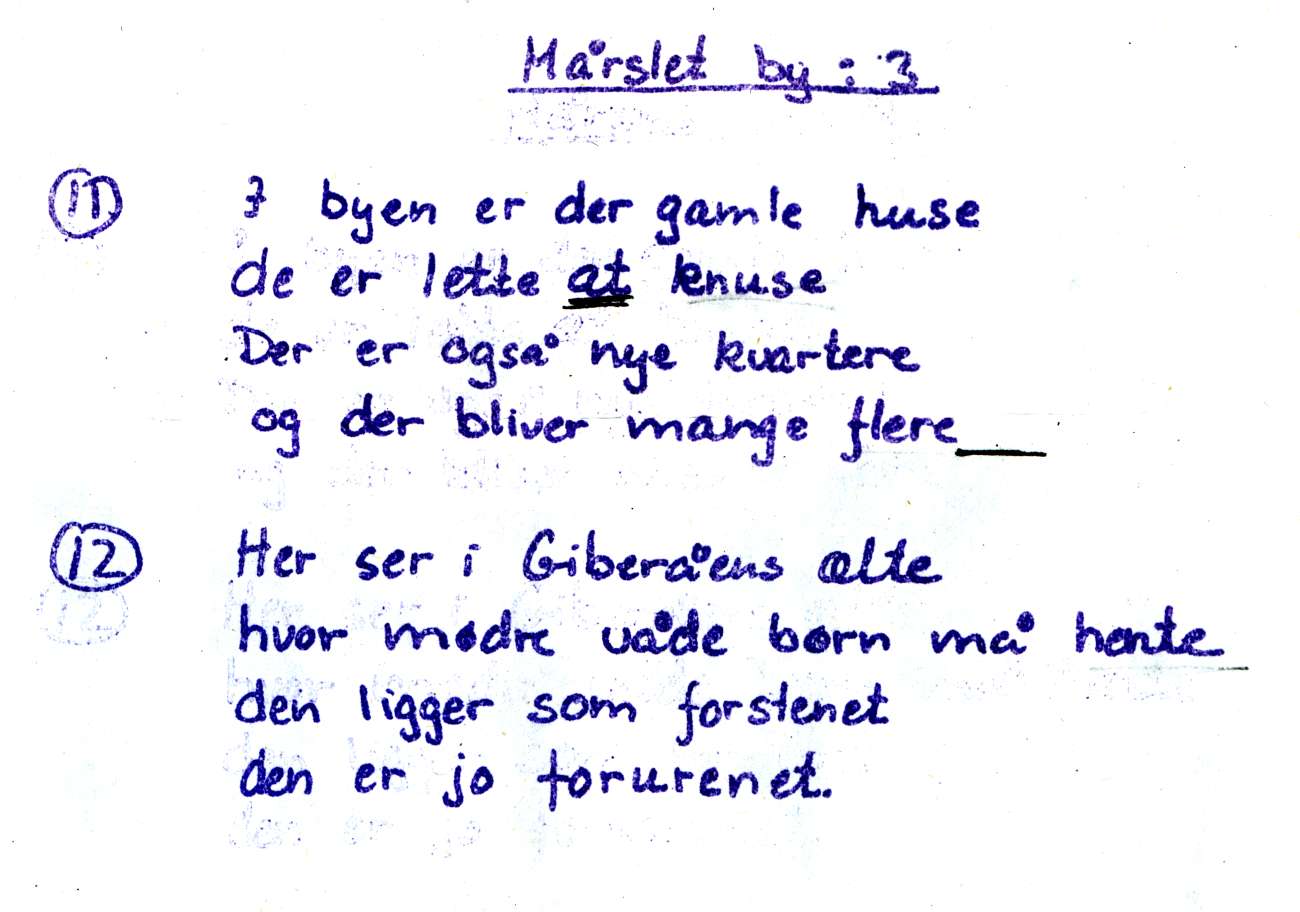 Mårslet by: 3
11 I byen er der gamle huse
de er lette at knuse
Der er også nye kvartere
og der bliver mange flere
12 Her ser i Giberåens ælte
hvor mødre våde børn må hente
den ligger som forstenet
den er jo forurenet.